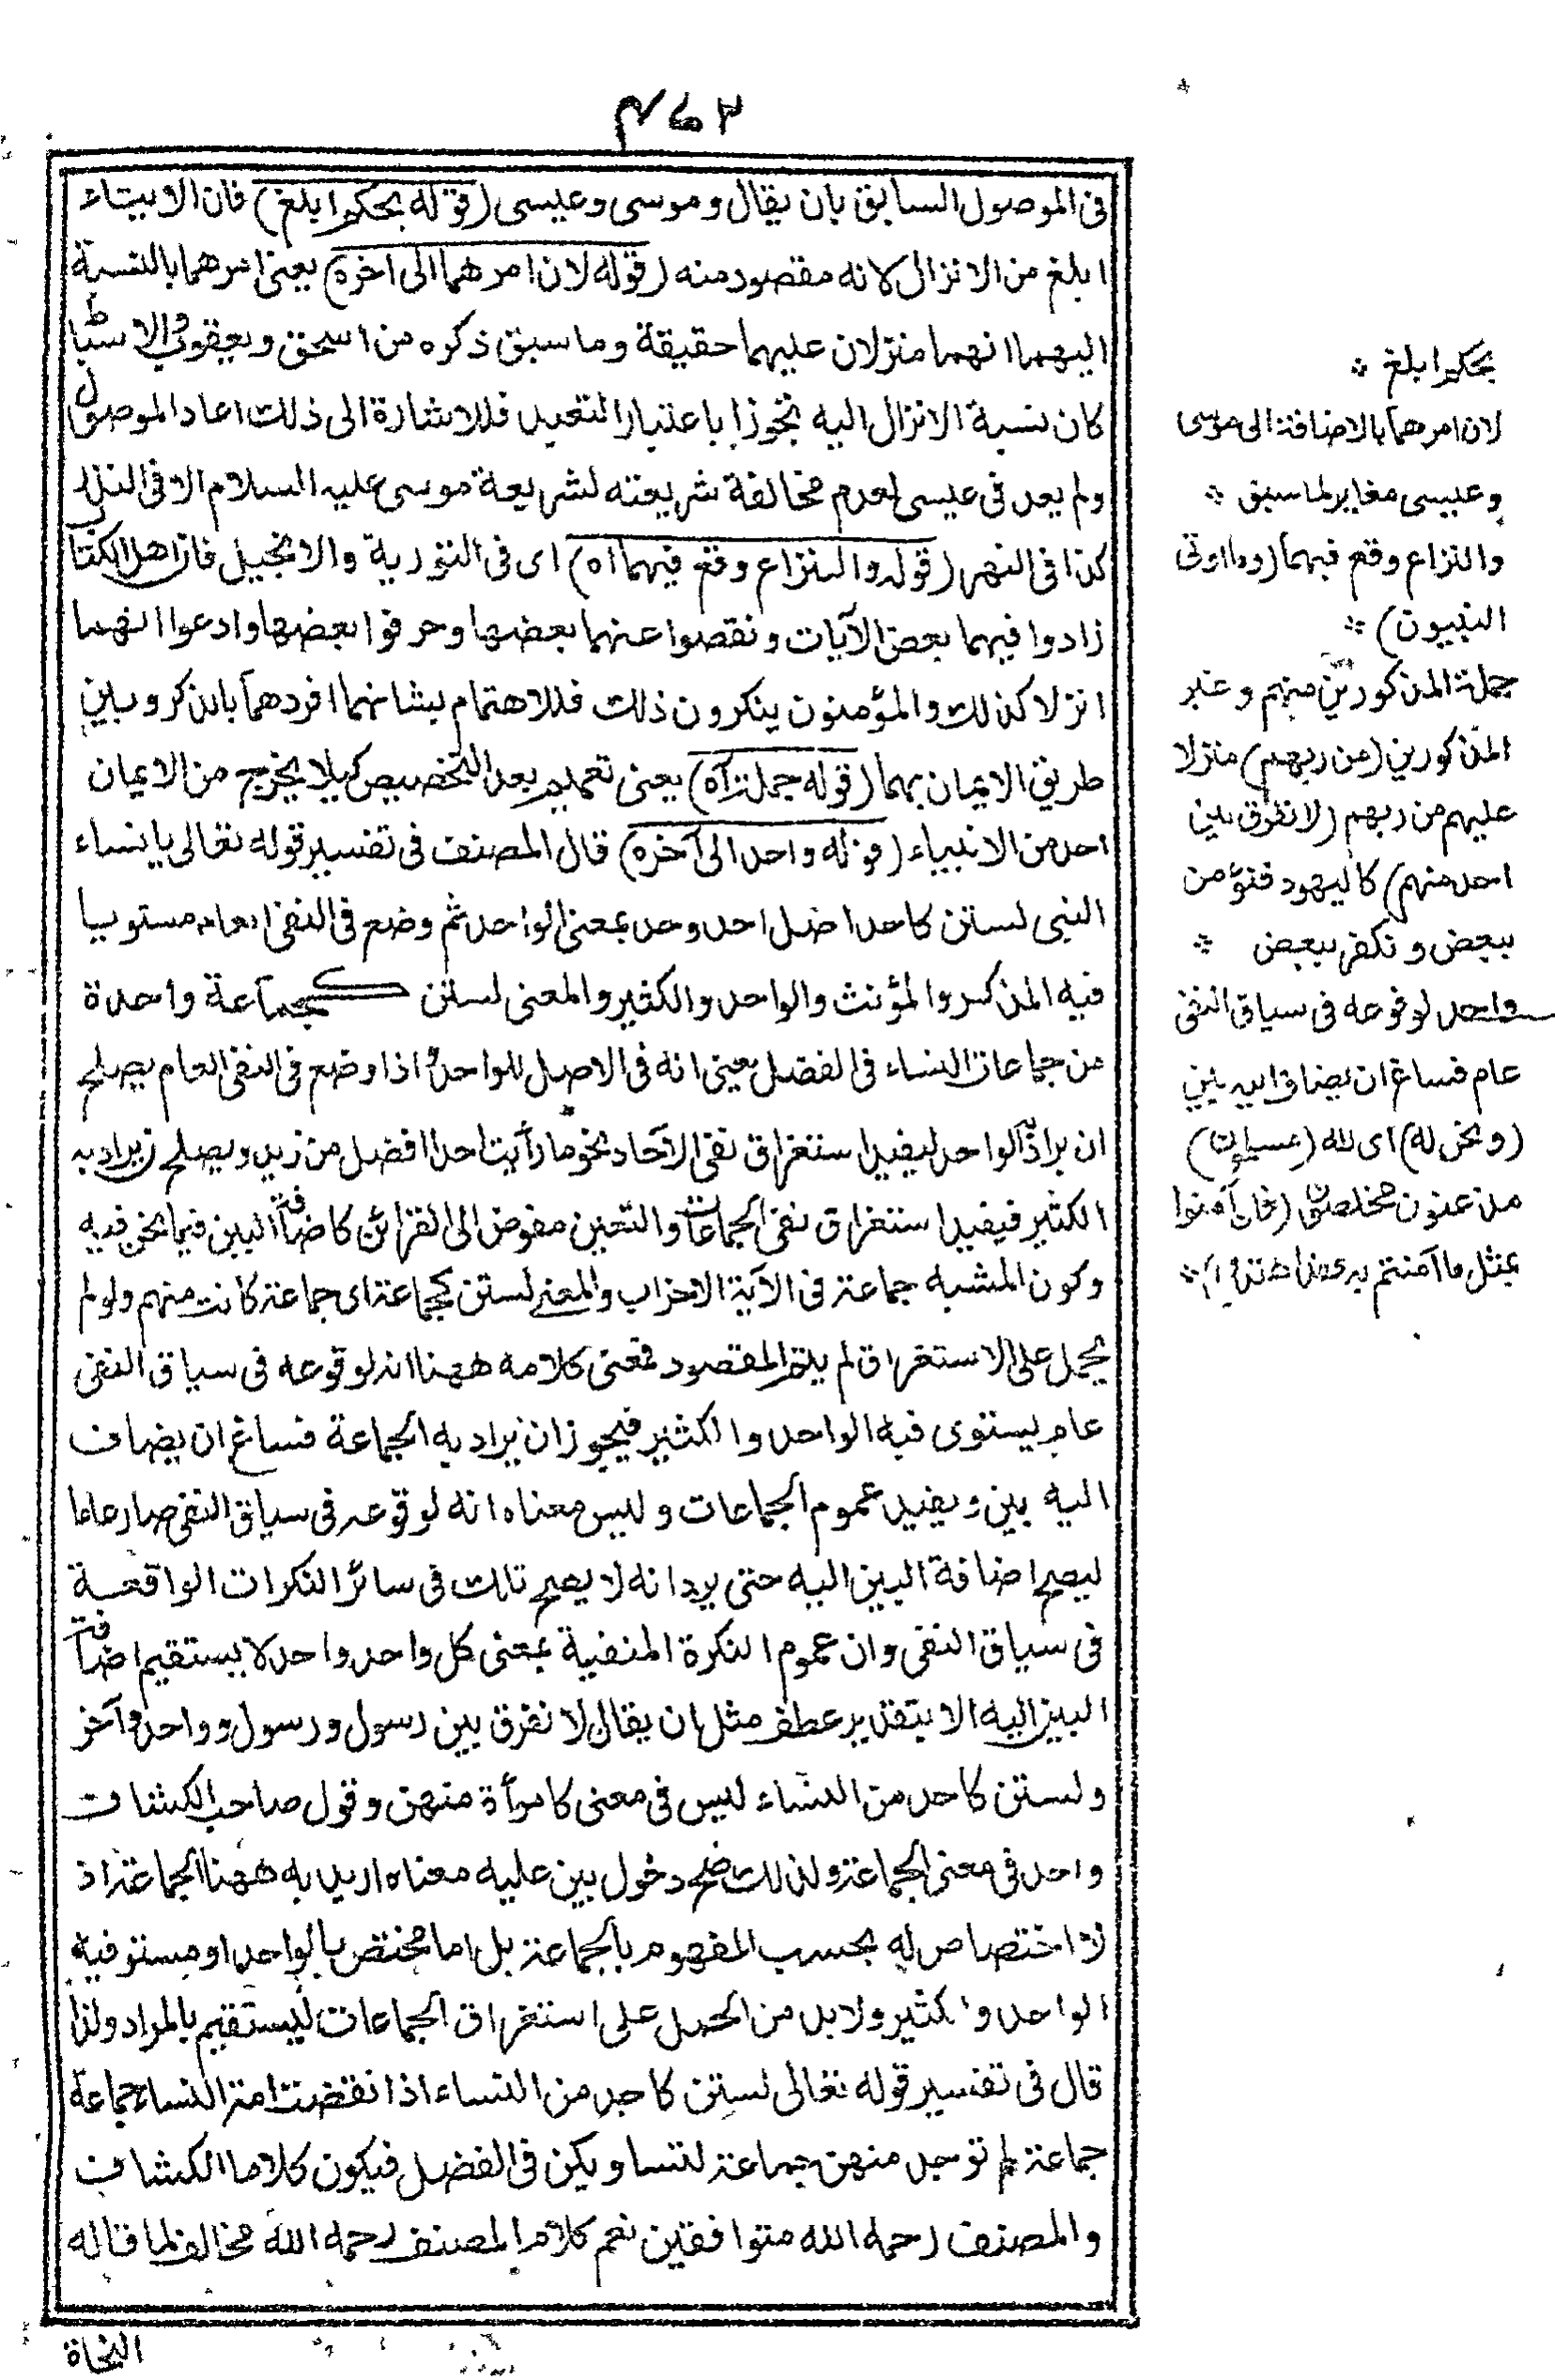 ٤٦٣
فى الموصول السابق بان يقال وموسى وعيسى (قوله بحكم ابلغ) فان الايتاء
ابلغ من الانزال لانه مقصود منه (قوله لان امرهما الى اخره) يعنى امرهما بالنسبة
اليهما انهما منزلان عليهما حقيقة وما سبق ذكره من اسحق ويعقوب والاسباط
كان نسبة الانزال اليه تجوزا باعتبار التعبد فللاشارة الى ذلك اعاد الموصول
ولم يعد فى عيسى لعدم مخالفة شريعته لشريعة موسى عليه السلام الا فى النزر
كذا فى النهر (قوله والنزاع وقع فيهما اه) اى فى التورية والانجيل فان اهل الكتاب
زادوا فيهما بعض الآيات ونقصوا عنهما بعضها وحرفوا بعضها وادعوا انهما
انزلا كذلك والمؤمنون ينكرون ذلك فللاهتمام بشانهما افردهما بالذكر وبين
طريق الايمان بهما (قوله جملة اه) يعنى تعميم بعد التخصيص كيلا يخرج من الايمان
احد من الانبياء (قوله واحد الى آخره) قال المصنف فى تفسير قوله تعالى يا نساء
النبى لستن كاحد اصل احد وحد بمعنى الواحد ثم وضع فى النفى العام مستويا
فيه المذكر والمؤنث والواحد والكثير والمعنى لستن كجماعة واحدة
من جماعات النساء فى الفضل يعنى انه فى الاصل للواحد اذا وضع فى النفى العام يصلح
ان يراد به الواحد ليفيد استغراق نفى الآحاد نحو ما رأيت احدا افضل من زيد ويصلح ان يراد به
الكثير فيفيد استغراق نفى الجماعات والتعين مفوض الى القرائن كاضافة البين فيما نحن فيه
وكون المشبه جماعة فى الآية الاحزاب والمعنى لستن كجماعة اى جماعة كانت منهم ولو لم
يحمل على الاستغراق لم يتم المقصود فمعنى كلامه ههنا انه لوقوعه فى سياق النفى
عام يستوى فيه الواحد والكثير فيجوز ان يراد به الجماعة فساغ ان يضاف
اليه بين ويفيد عموم الجماعات وليس معناه انه لوقوعه فى سياق النفى صار عاما
ليصح اضافة البين اليه حتى يرد انه لا يصح تلك فى سائر النكرات الواقعة
فى سياق النفى وان عموم النكرة المنفية بمعنى كل واحد واحد لا يستقيم اضافة
البين اليه الا بتقدير عطف مثل ان يقال لا نفرق بين رسول ورسول وواحد وآخر
ولستن كاحد من النساء ليس فى معنى كامرأة منهن وقول صاحب الكشاف
واحد فى معنى الجماعة ولذلك صح دخول بين عليه معناه اريد به ههنا الجماعة اذ
لا اختصاص له بحسب المفهوم بالجماعة بل اما مختص بالواحد او مستو فيه
الواحد والكثير ولا بد من الحمل على استغراق الجماعات ليستقيم بالمراد ولذا
قال فى تفسير قوله تعالى لستن كاحد من النساء اذا نقضت امة النساء جماعة
جماعة لم توجد منهن جماعة لتساويكن فى الفضل فيكون كلاما الكشاف
والمصنف رحمه الله متوافقين نعم كلام المصنف رحمه الله مخالف لما قاله
النحاة
بحكم ابلغ
لان امرهما بالاضافة الى موسى
وعيسى مغاير لما سبق
والنزاع وقع فيهما (وما اوتى
النبيون)
جملة المذكورين منهم وغير
المذكورين (من ربهم) منزلا
عليهم من ربهم (لا نفرق بين
احد منهم) كاليهود فنؤمن
ببعض ونكفر ببعض
واحد لوقوعه فى سياق النفى
عام فساغ ان يضاف اليه بين
(ونحن له) اى لله (مسلمون)
مذعنون مخلصون (فان آمنوا
بمثل ما آمنتم به فقد اهتدوا)